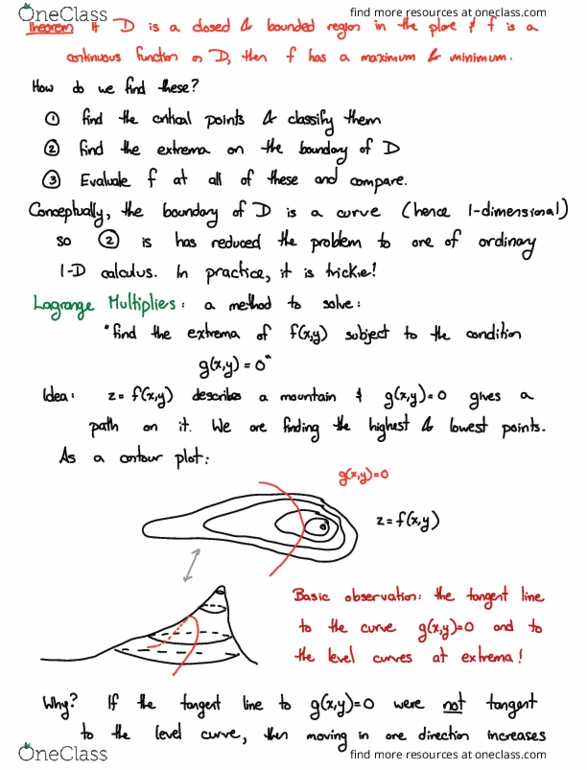 OneClass
find more resources at oneclass.com
Theorem If D is a closed & bounded region in the plane & f is a
continuous function on D, then f has a maximum & minimum.
How do we find these?
① find the critical points & classify them
② find the extrema on the boundary of D
③ Evaluate f at all of these and compare.
Conceptually, the boundary of D is a curve (hence 1-dimensional)
so ② is has reduced the problem to one of ordinary
1-D calculus. In practice, it is trickie!
Lagrange Multipliers: a method to solve:
"find the extrema of f(x,y) subject to the condition
g(x,y) = 0"
Idea: z = f(x,y) describes a mountain & g(x,y)=0 gives a
path on it. We are finding the highest & lowest points.
As a contour plot:
g(x,y)=0
z = f(x,y)
Basic observation: the tangent line
to the curve g(x,y)=0 and to
the level curves at extrema!
Why? If the tangent line to g(x,y)=0 were not tangent
to the level curve, then moving in one direction increases
OneClass
find more resources at oneclass.com